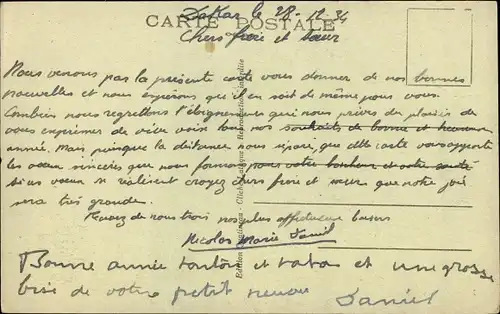 CARTE POSTALE
Dakar le 28-12-34
Chers frère et soeur
Nous venons par la présente carte vous donner de nos bonnes
nouvelles et nous espérons que il en soit de même pour vous.
Combien nous regrettons l'éloignement qui nous prives du plaisir de
vous exprimer de vive voix tous nos souhaits de bonne et heureuse
année. Mais puisque la distance nous sépare, que cette carte vous apporte
les voeux sincères que nous formons pour votre bonheur et votre santé
si ces voeux se réalisent croyez chers frère et soeur que notre joie
sera très grande.
Recevez de nous trois nos plus affectueux baisers
Nicolas Marie Daniel
Bonne année tonton et tata et une grosse
bise de votre petit neveu Daniel